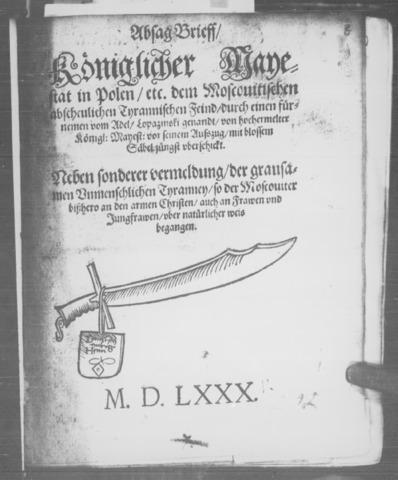 Absag Brieff/
Königlicher Maye-
stat in Polen/ etc. dem Moscouitischen
abscheulichen Tyrannischen Feind/ durch einen für-
nemen vom Adel/ Lopazinski genandt/ von hochermelter
Königl: Mayest: vor seinem Aufszug/ mit blossem
Säbel züngst vberschickt.
Neben sonderer vermeldung/ der grausa-
men Vnmenschlichen Tyranney/ so der Moscouiter
bißhero an den armen Christen/ auch an Frawen vnd
Jungfrawen/ vber natürlicher weis
begangen.
M. D. LXXX.